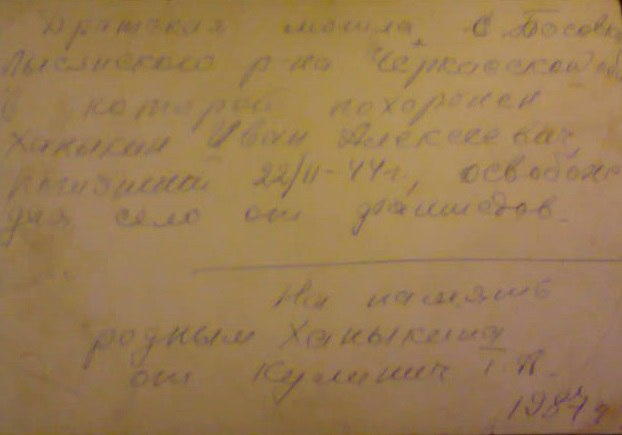 Братская могила с. Босовка
Лысянского р-на Черкасской об
в которой похоронен
Ханыкин Иван Алексеевич,
22/II-44г., освобож
дая село от фашистов.
На память
родным Ханыкина
от Кулинич Т.П.